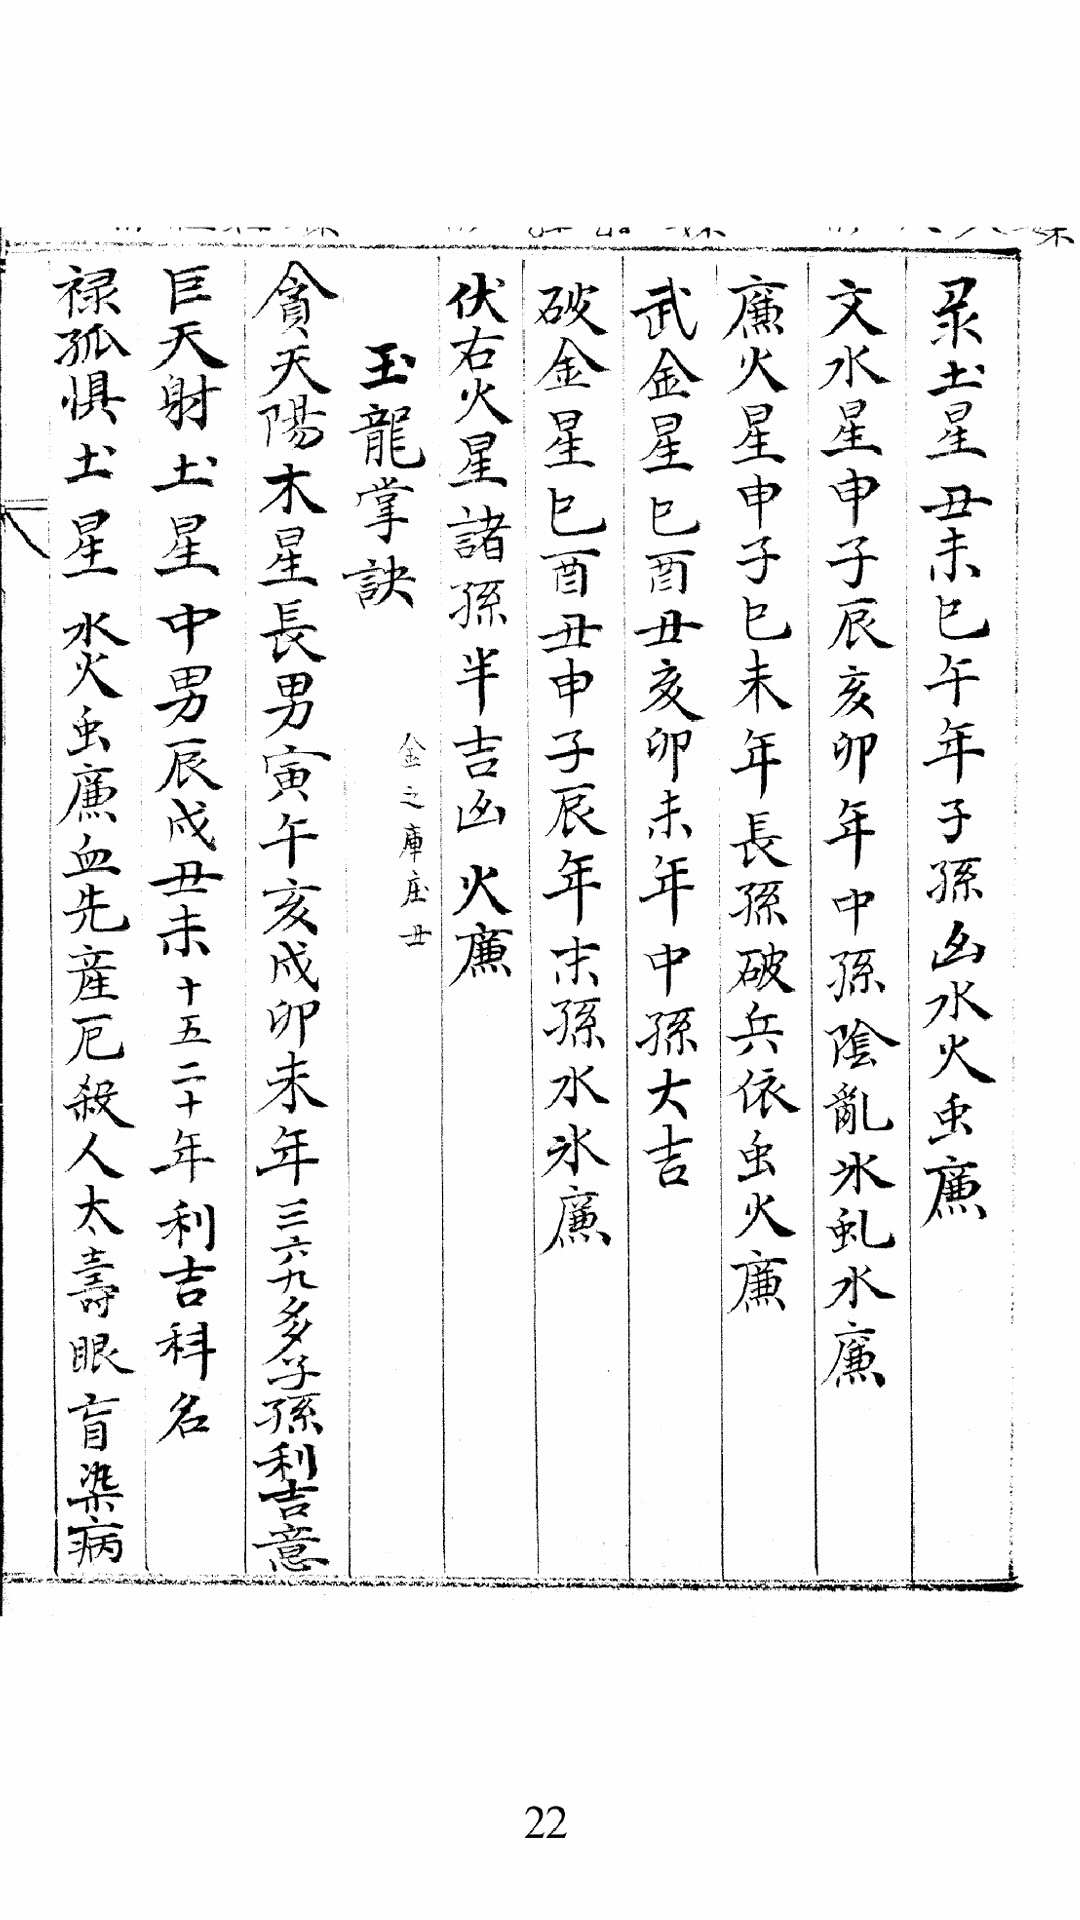 彔土星丑未巳午年子孫凶水火虫廉
文水星申子辰亥卯年中孫陰亂氷虬水廉
廉火星申子巳未年長孫破兵依虫火廉
武金星巳酉丑亥卯未年中孫大吉
破金星巳酉丑申子辰年末孫水氷廉
伏右火星諸孫半吉凶火廉
玉龍掌訣
金之庫庄丑
貪天陽木星長男寅午亥戌卯未年三六九多子孫利吉意
巨天射土星中男辰戌丑未十五二十年利吉科名
禄孤惧土星水火虫廉血先産厄殺人太壽眼盲染病
22